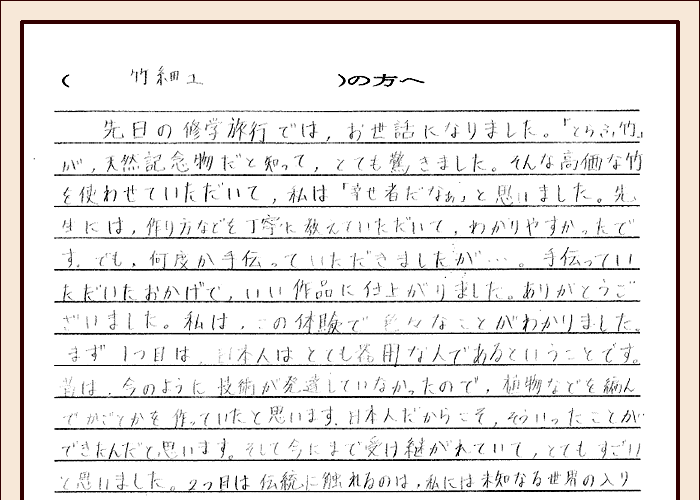 (竹細工)の方へ
先日の修学旅行では、お世話になりました。「とらふ竹」
が、天然記念物だと知って、とても驚きました。そんな高価な竹
を使わせていただいて、私は「幸せ者だなぁ」と思いました。先
生には、作り方などを丁寧に教えていただいて、わかりやすかったで
す。でも、何度か手伝っていただきましたが…。手伝ってい
ただいたおかげで、いい作品に仕上がりました。ありがとうご
ざいました。私は、この体験で色々なことがわかりました。
まず1つ目は、日本人はとても器用な人であるということです。
昔は、今のように技術が発達していなかったので、植物などを編ん
でかごとかを作っていたと思います。日本人だからこそ、そういったことが
できたんだと思います。そして今にまで受け継がれていて、とてもすごい
と思いました。2つ目は伝統に触れるのは、私には未知なる世界の入り